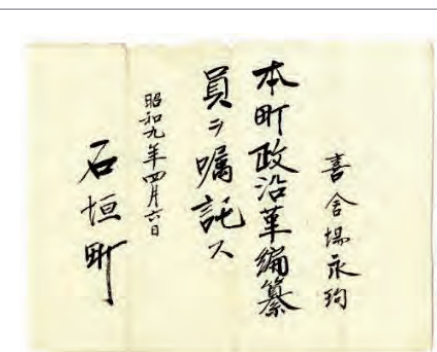 喜舎場永珣
本町政沿革編纂
員ヲ嘱託ス
昭和九年四月六日
石垣町